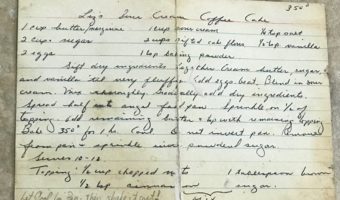 350°
Sour Cream Coffee Cake
1 cup butter/margarine 1 cup sour cream ¼ tsp salt
2 cups sugar 2 cups sifted cake flour ½ tsp vanilla
2 eggs 1 tsp baking powder
Sift dry ingredients together. Cream butter, sugar,
and vanilla til very fluffy. Add eggs, beat. Blend in sour
cream. Mix thoroughly. Gradually add dry ingredients.
Spread half into angel food pan. Sprinkle on ½ of
topping. Add remaining batter & top with remaining topping
Bake 350° for 1 hr. Cool & not invert pan. Remove
from pan & sprinkle powdered sugar.
Serves 10-12.
Topping: ½ cup chopped nuts 1 tablespoon brown
½ tsp cinnamon sugar.